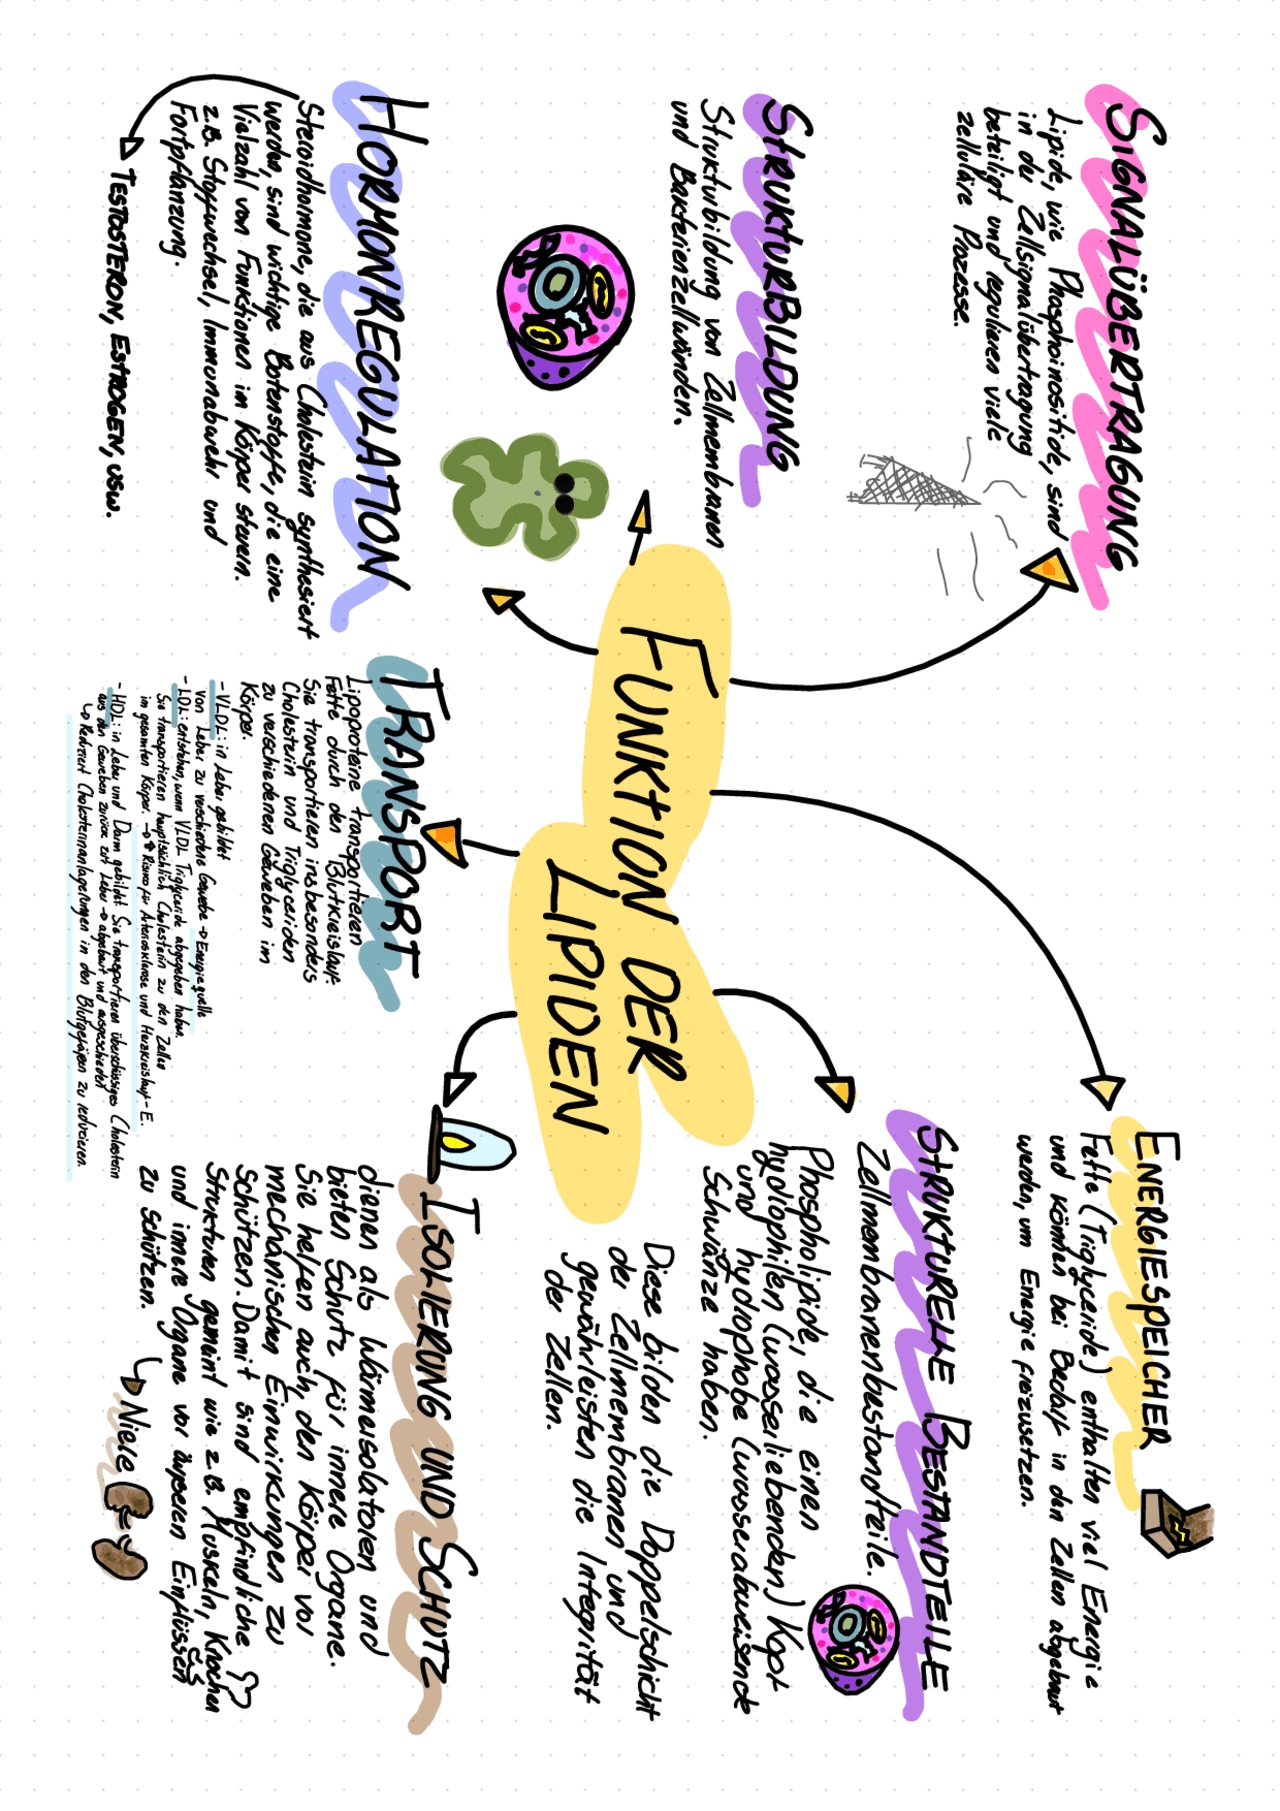 SIGNALÜBERTRAGUNG
Lipide, wie Phosphoinositide, sind
in der Zellsignalübertragung
beteiligt und regulieren viele
zelluläre Prozesse.
ENERGIESPEICHER
Fette (Triglyceride) enthalten viel Energie
und können bei Bedarf in den Zellen abgebaut
werden, um Energie freizusetzen.
STRUKTURBILDUNG
Strukturbildung von Zellmembranen
und Bakterienzellwänden.
STRUKTURELLE BESTANDTEILE
Zellmembranenbestandteile.
Phospholipide, die einen
hydrophilen (wasserliebenden) Kopf
und hydrophobe (wasserabweisende
Schwänze haben.
Diese bilden die Doppelschicht
der Zellmembranen und
gewährleisten die Integrität
der Zellen.
FUNKTION DER
LIPIDEN
HORMONREGULATION
Steroidhormone, die aus Cholesterin synthesiert
werden, sind wichtige Botenstoffe, die eine
Vielzahl von Funktionen im Körper steuern.
z.B. Stoffwechsel, Immunabwehr und
Fortpflanzung.
TESTOSTERON, ESTROGEN, USW.
TRANSPORT
Lipoproteine transportieren
Fette durch den Blutkreislauf.
Sie transportieren insbesonders
Cholesterin und Triglyceriden
zu verschiedenen Geweben im
Körper.
- VLDL: in Leber gebildet
von Leber zu verschiedene Gewebe → Energiequelle
- LDL: entstehen, wenn VLDL Triglyceride abgegeben haben.
Sie transportieren hauptsächlich Cholesterin zu den Zellen
im gesamten Körper. → ↑ Risiko für Arteriosklerose und Herzkreislauf-E.
- HDL: in Leber und Darm gebildet. Sie transportieren überschüssiges Cholesterin
aus den Geweben zurück zur Leber → abgebaut und ausgeschieden
↳ Reduziert Cholesterinanlagerungen in den Blutgefäßen zu reduzieren.
ISOLIERUNG UND SCHUTZ
dienen als Wärmeisolatoren und
bieten Schutz für innere Organe.
Sie helfen auch, den Körper vor
mechanischen Einwirkungen zu
schützen. Damit sind empfindliche
Strukturen gemeint wie z.B. Muskeln, Knochen
und innere Organe vor äußeren Einflüssen
zu schützen.
↳ Niere